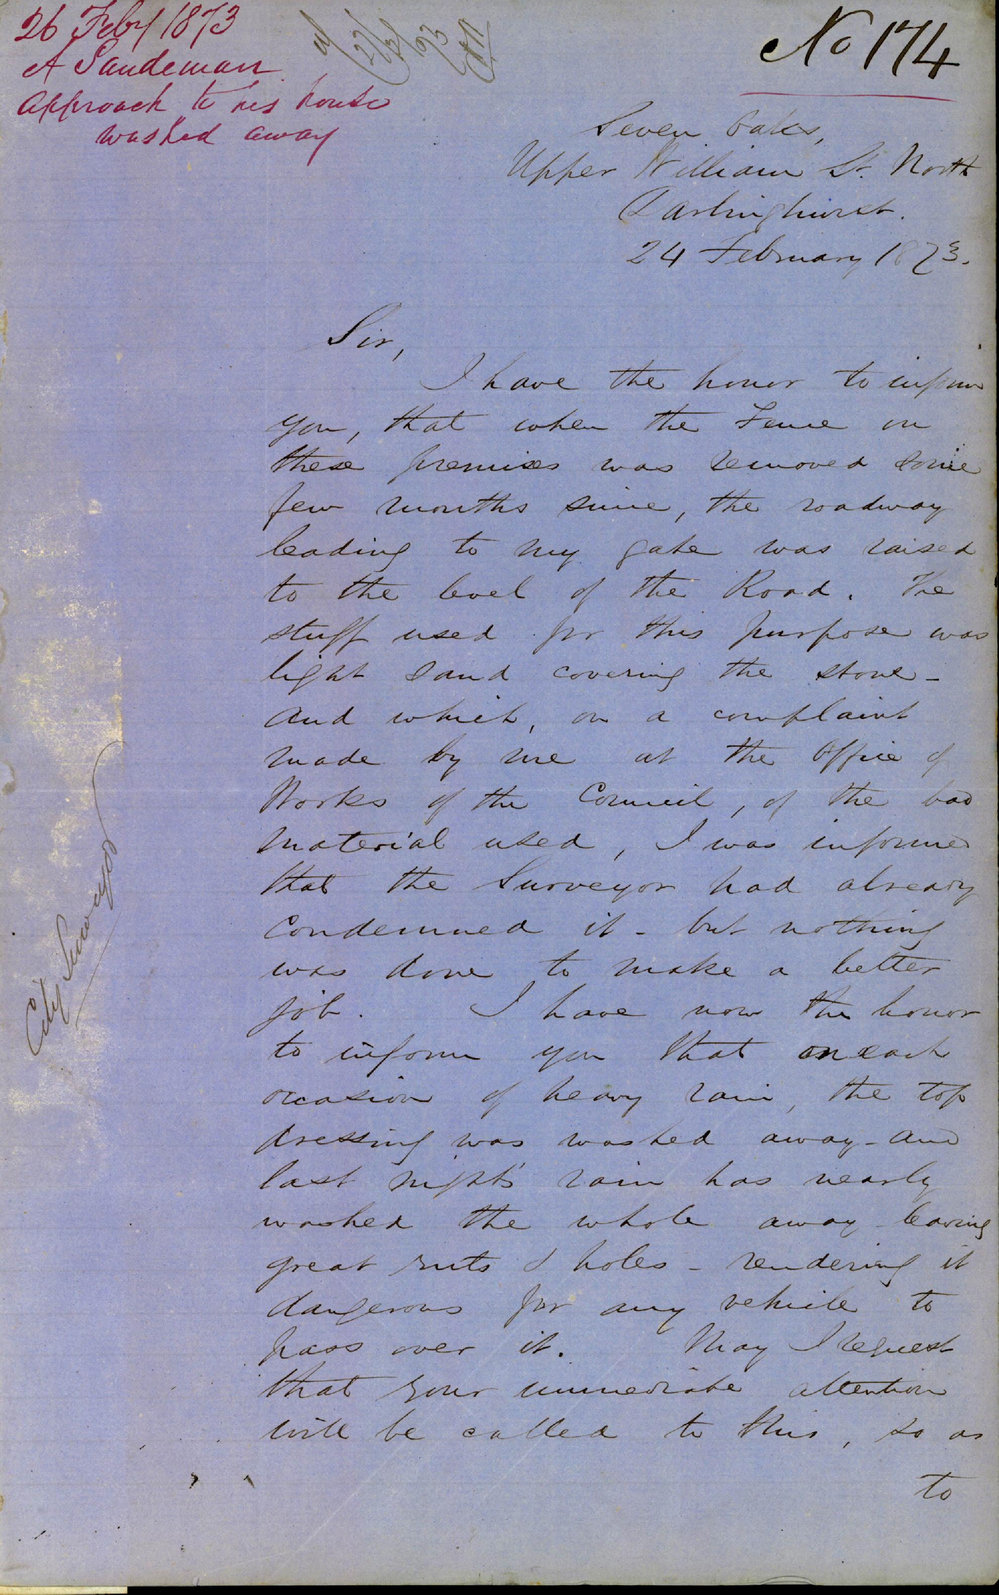 26 Feby 1873
A Sandeman
Approach to his house
washed away
No 174
Seven Oaks,
Upper William St. North
Darlinghurst.
24 February 1873.
Sir,
I have the honor to inform
you, that when the Fence on
these premises was removed some
few months since, the roadway
leading to my gate was raised
to the level of the Road. The
stuff used for this purpose was
light sand covering the stone -
and which, on a complaint
made by me at the Office of
Works of the Council, of the bad
material used, I was informed
that the Surveyor had already
condemned it - but nothing
was done to make a better
job. I have now the honor
to inform you that on each
occasion of heavy rain, the top
dressing was washed away - and
last night's rain has nearly
washed the whole away leaving
great ruts & holes - rendering it
dangerous for any vehicle to
pass over it. May I request
that your immediate attention
will be called to this, so as
to
City Surveyor